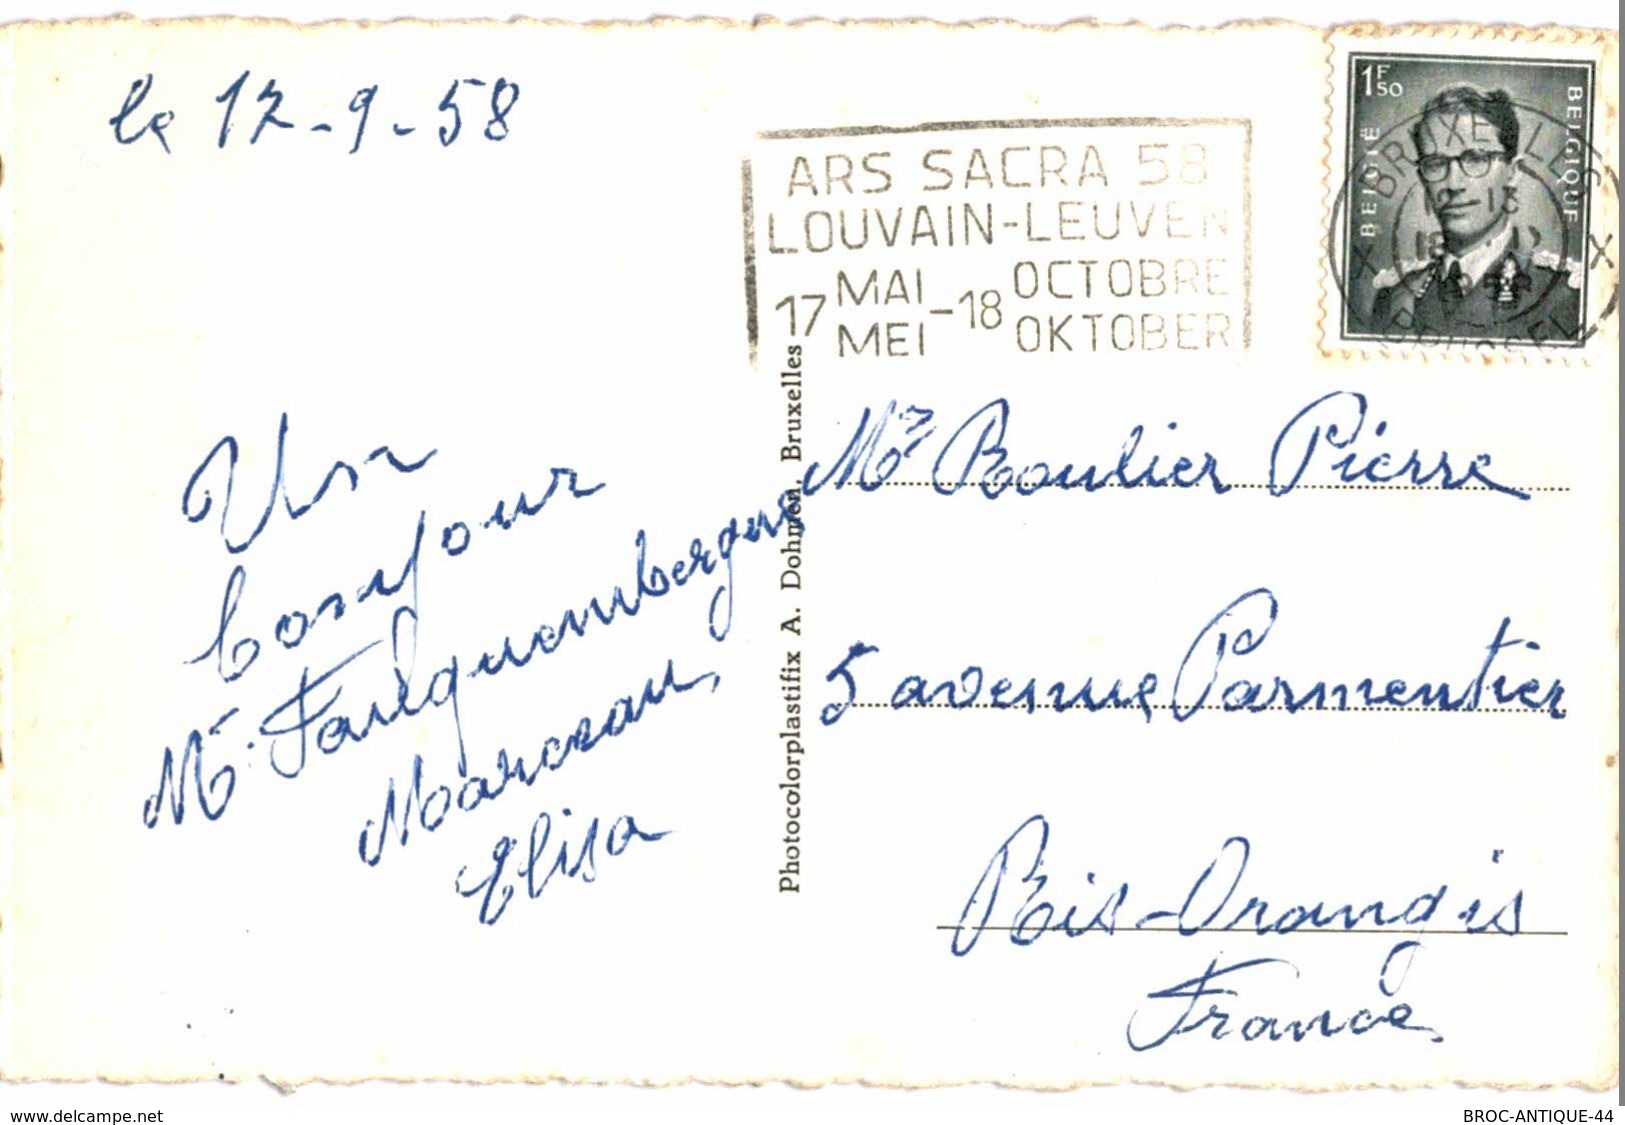 le 12-9-58
ARS SACRA 58
LOUVAIN-LEUVEN
17 MAI MEI - 18 OCTOBRE OKTOBER
1F50
BELGIË
BELGIQUE
BRUXELLES
X X
12-13
BRUSSEL 1
Un
bonjour
Mr. Faulquembergue
Marceau,
Elisa
Photocolorplastifix A. Dohmen, Bruxelles
Mr Boulier Pierre
5 avenue Parmentier
Ris-Orangis
France
www.delcampe.net
BROC-ANTIQUE-44